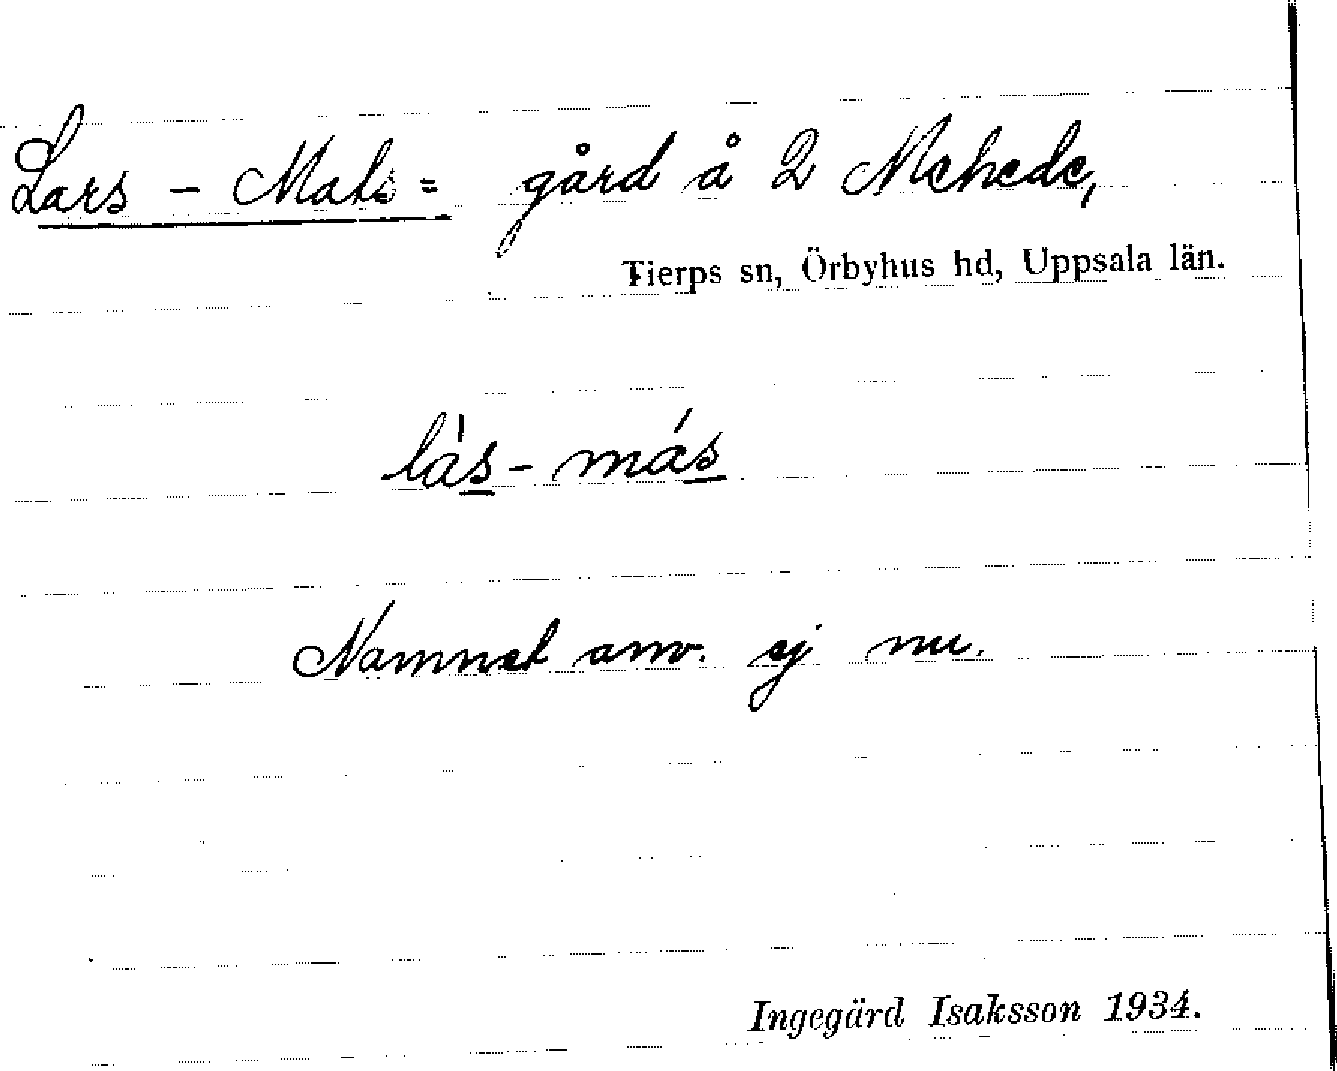 Lars - Mats = gård å 2 Mehede,
Tierps sn, Örbyhus hd, Uppsala län.
lás - más
Namnet anv. ej nu.
Ingegärd Isaksson 1934.